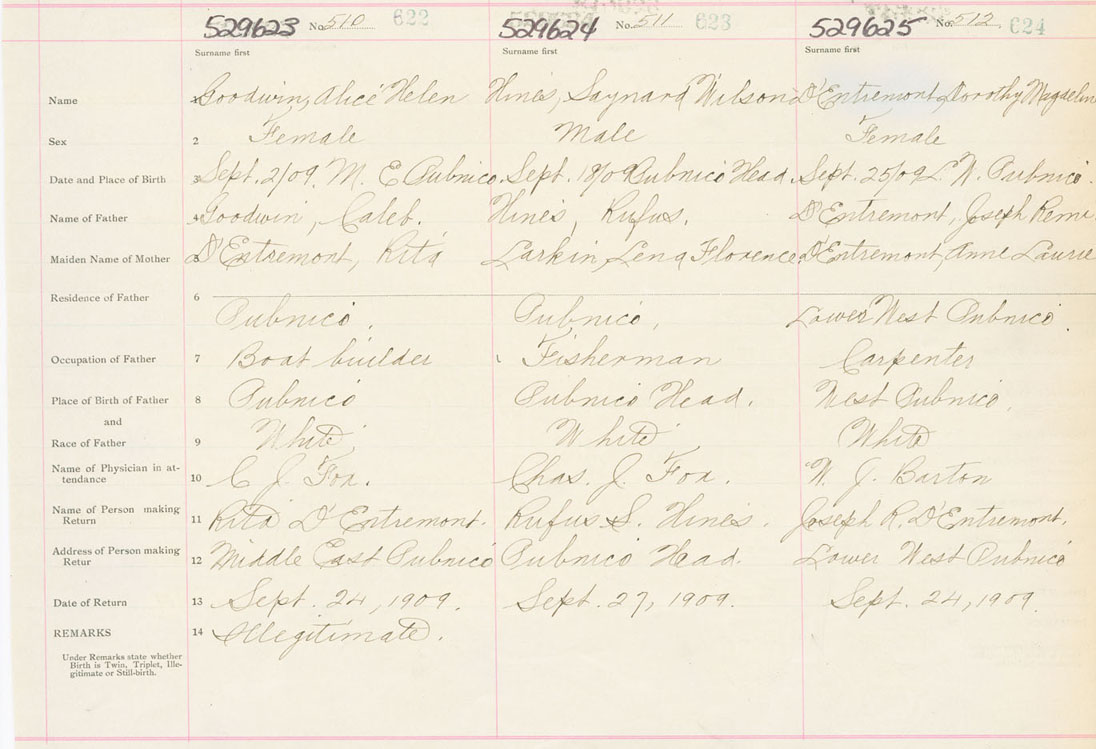 529623 No. 510 622 529624 No. 511 623 529625 No. 512 624
Surname first Surname first Surname first
Name 1 Goodwin, Alice Helen Hines, Saynard Wilson D'Entremont, Dorothy Magdelin
Sex 2 Female Male Female
Date and Place of Birth 3 Sept. 2/09. M. E. Pubnico. Sept. 18/09 Pubnico Head. Sept. 25/09 L. W. Pubnico.
Name of Father 4 Goodwin, Caleb. Hines, Rufus. D'Entremont, Joseph Remi
Maiden Name of Mother 5 D'Entremont, Rita Larkin, Lena Florence D'Entremont, Anne Laurie
Residence of Father 6
Pubnico. Pubnico, Lower West Pubnico.
Occupation of Father 7 Boat builder Fisherman Carpenter
Place of Birth of Father 8 Pubnico Pubnico Head. West Pubnico.
and
Race of Father 9 White White White
Name of Physician in at-
tendance 10 C. J. Fox. Chas. J. Fox. W. J. Barton
Name of Person making
Return 11 Rita D'Entremont. Rufus S. Hines. Joseph R. D'Entremont.
Address of Person making
Retur 12 Middle East Pubnico Pubnico Head. Lower West Pubnico
Date of Return 13 Sept. 24, 1909. Sept. 27, 1909. Sept. 24, 1909.
REMARKS 14 Illegitimate.
Under Remarks state whether
Birth is Twin, Triplet, Ille-
gitimate or Still-birth.